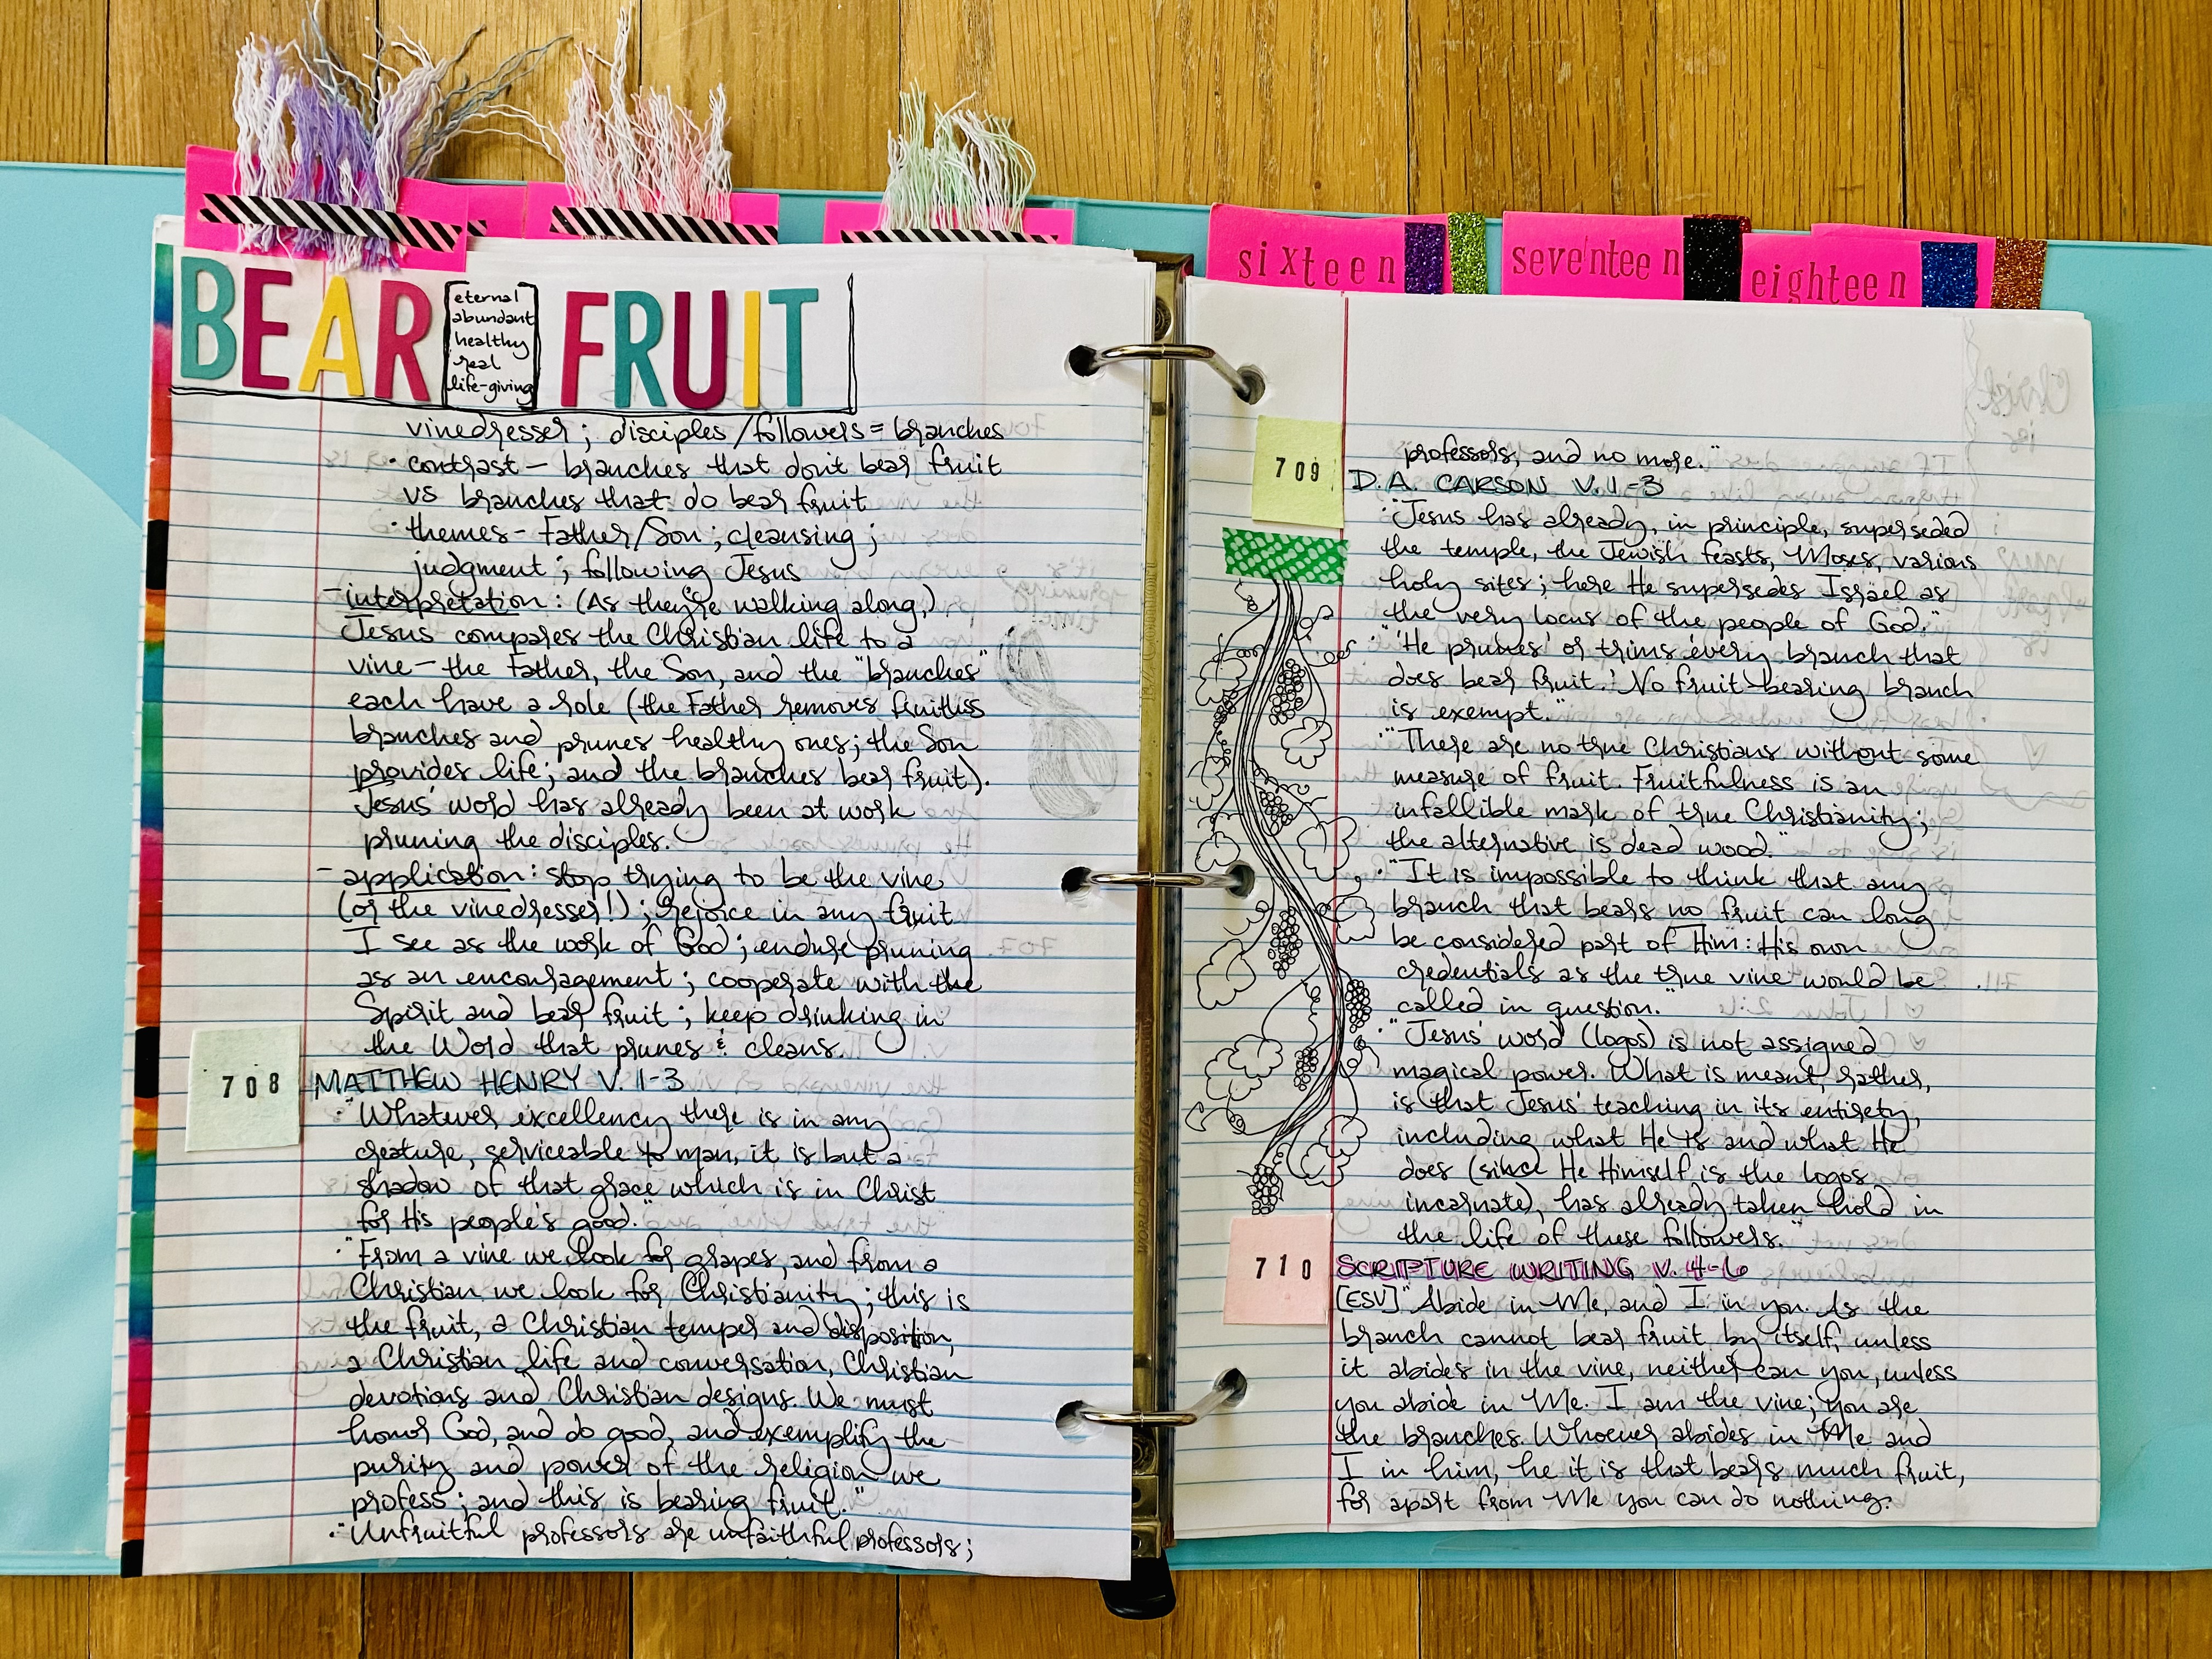 sixteen
seventeen
eighteen
BEAR FRUIT
eternal
abundant
healthy
real
life-giving
vinedresser; disciples/followers = branches
· contrast – branches that don't bear fruit
vs branches that do bear fruit
· themes – Father/Son; cleansing;
judgment; following Jesus
– interpretation: (As they're walking along,)
Jesus compares the Christian life to a
vine – the Father, the Son, and the "branches"
each have a role (the Father removes fruitless
branches and prunes healthy ones; the Son
provides life; and the branches bear fruit).
Jesus' word has already been at work
pruning the disciples.
– application: stop trying to be the vine
(or the vinedresser!); rejoice in any fruit
I see as the work of God; endure pruning
as an encouragement; cooperate with the
Spirit and bear fruit; keep drinking in
the Word that prunes & cleans.
708
MATTHEW HENRY V. 1-3
· "Whatever excellency there is in any
creature, serviceable to man, it is but a
shadow of that grace which is in Christ
for His people's good."
· "From a vine we look for grapes, and from a
Christian we look for Christianity; this is
the fruit, a Christian temper and disposition,
a Christian life and conversation, Christian
devotions and Christian designs. We must
honor God, and do good, and exemplify the
purity and power of the religion we
profess; and this is bearing fruit."
· "Unfruitful professors are unfaithful professors;
professors, and no more."
709
D.A. CARSON V. 1-3
· "Jesus has already, in principle, superseded
the temple, the Jewish feasts, Moses, various
holy sites; here He supersedes Israel as
the very locus of the people of God."
· "'He prunes' or trims 'every branch that
does bear fruit.' No fruit-bearing branch
is exempt."
· "There are no true Christians without some
measure of fruit. Fruitfulness is an
infallible mark of true Christianity;
the alternative is dead wood."
· "It is impossible to think that any
branch that bears no fruit can long
be considered part of Him: His own
credentials as the true vine would be
called in question."
· "Jesus' word (logos) is not assigned
magical power. What is meant, rather,
is that Jesus' teaching in its entirety,
including what He is and what He
does (since He Himself is the logos
incarnate), has already taken hold in
the life of these followers."
710
SCRIPTURE WRITING V. 4-6
[ESV] "Abide in Me, and I in you. As the
branch cannot bear fruit by itself, unless
it abides in the vine, neither can you, unless
you abide in Me. I am the vine; you are
the branches. Whoever abides in Me and
I in him, he it is that bears much fruit,
for apart from Me you can do nothing.